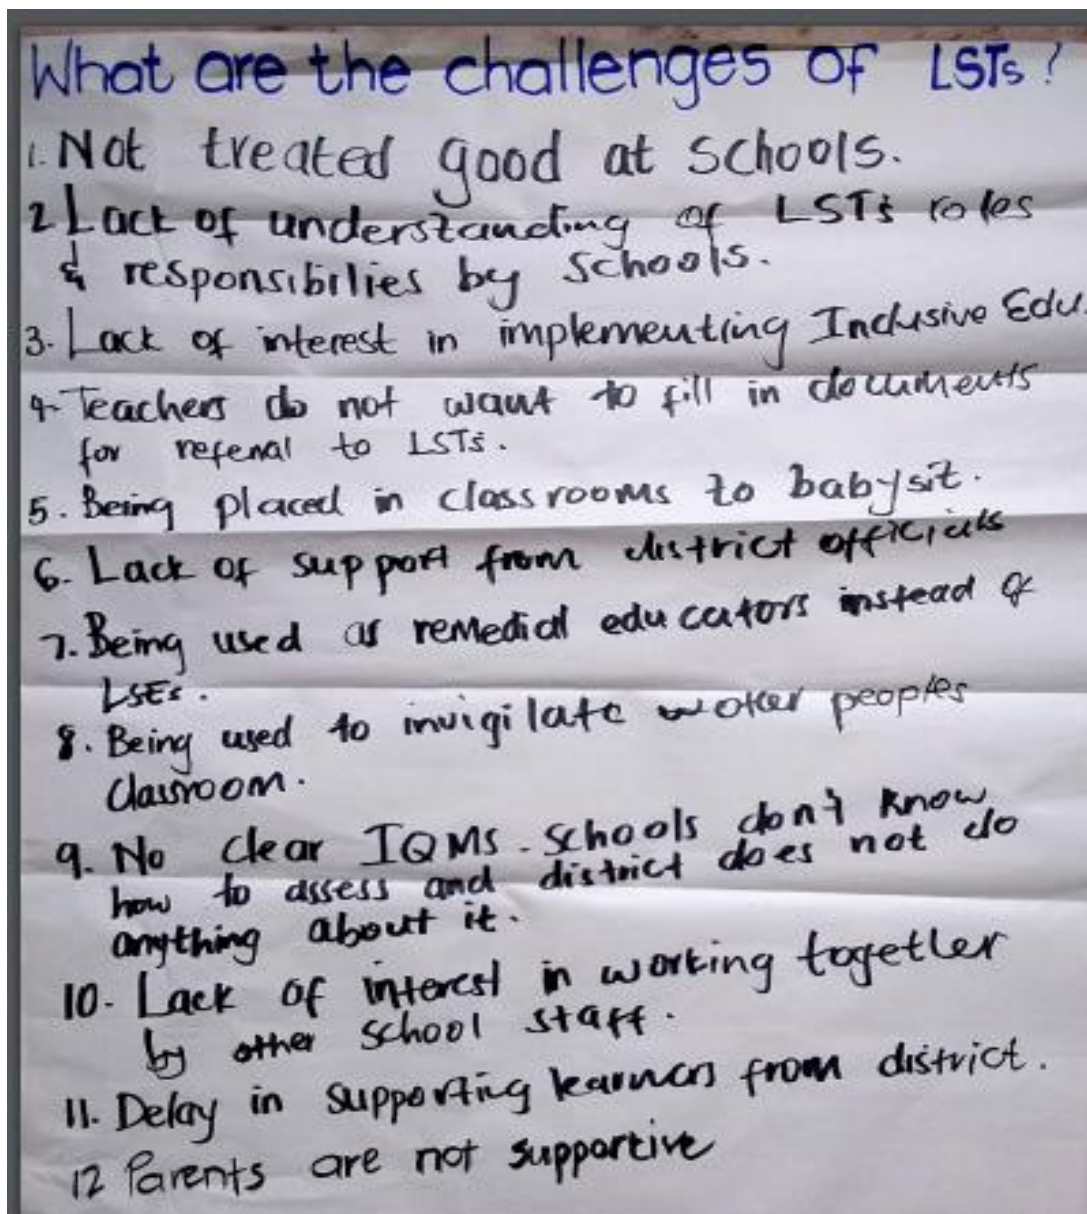 What are the challenges of LSTs?
1. Not treated good at schools.
2 Lack of understanding of LSTs roles
& responsibilies by schools.
3. Lack of interest in implementing Inclusive Edu.
4- Teachers do not want to fill in documents
for referral to LSTs.
5. Being placed in classrooms to babysit.
6. Lack of support from district officials
7. Being used as remedial educators instead of
LSEs.
8. Being used to invigilate peoples
classroom.
9. No clear IQMS - schools don't know
how to assess and district does not do
anything about it.
10- Lack of interest in working together
by other school staff.
11. Delay in supporting learners from district.
12 Parents are not supportive